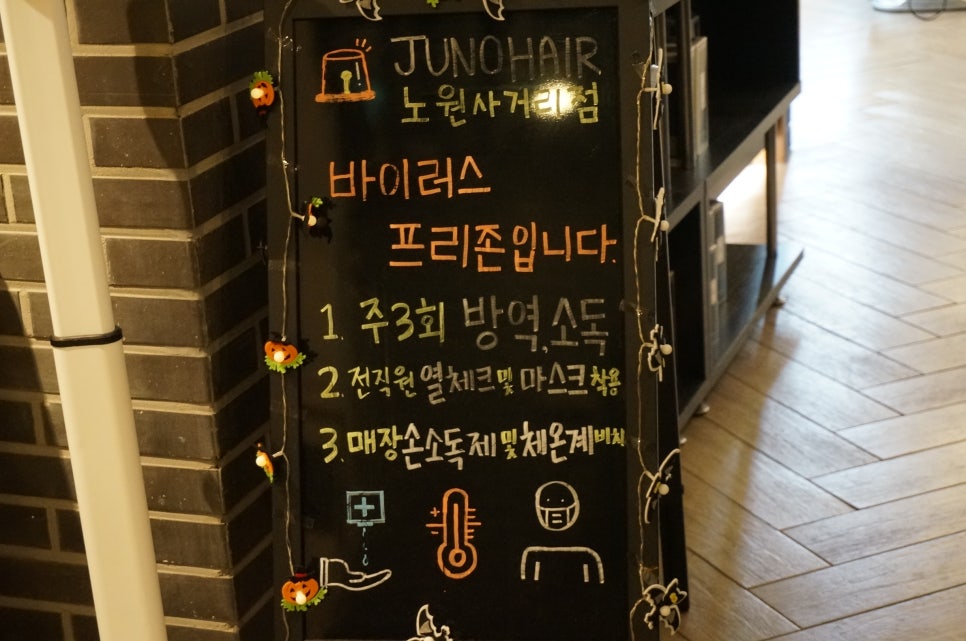 JUNOHAIR
노원사거리점
바이러스
프리존입니다.
1. 주3회 방역,소독
2. 전직원 열체크 및 마스크 착용
3. 매장 손소독제 및 체온계 비치